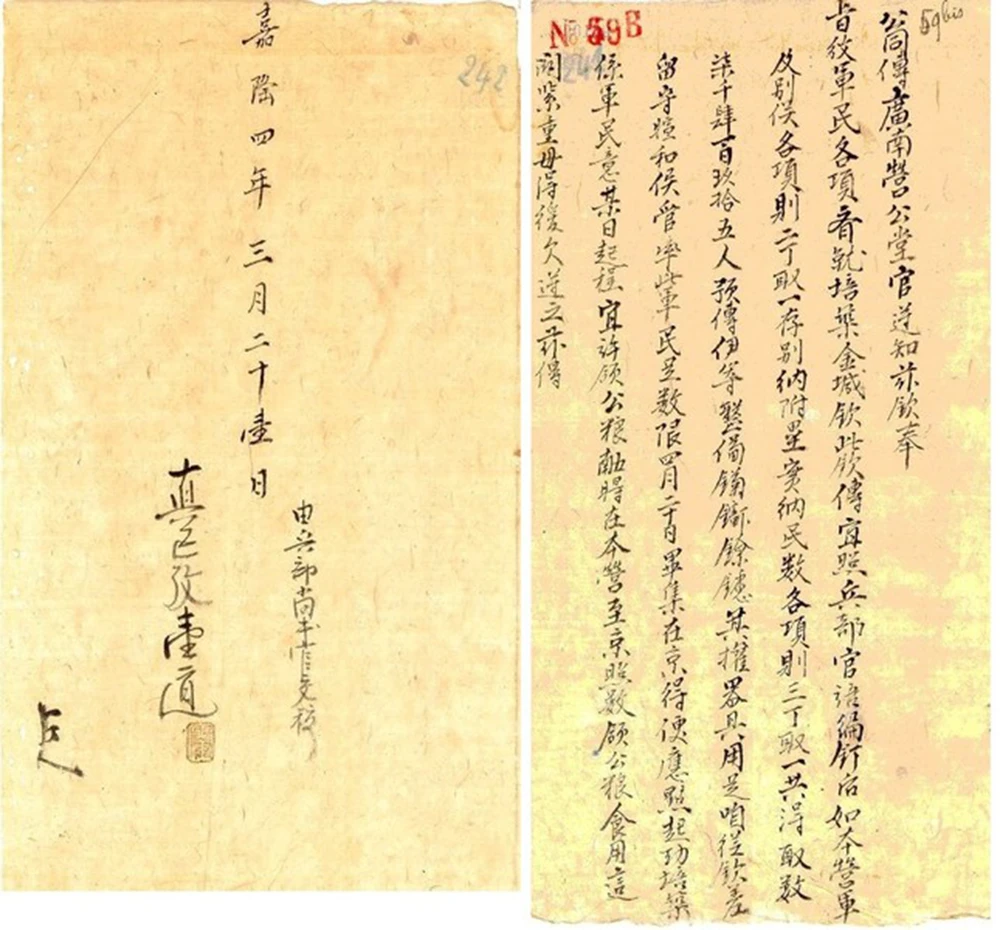 59 bis
No 59 B
242
公同傳廣南營公堂官遵知茲欽奉
旨軍民各項就培築金城欽此欽傳宜照兵部官編釘后如本營軍
及別侯各項則二丁取一存別納附壘寔納民数各項則三丁取一共淂取数
柒千肆百玖拾五人預傳伊等整俻其器具用足咱從欽差
留守和侯管率此軍民足数限四月二十日畢集在京得便應照起功培築
係軍民意某日起程宜許領公粮在本營至京照数領公粮食用這
関緊重毋得後欠遵之茲傳
242
由兵部尚書官文移
嘉隆四年三月二十壹日
壹道